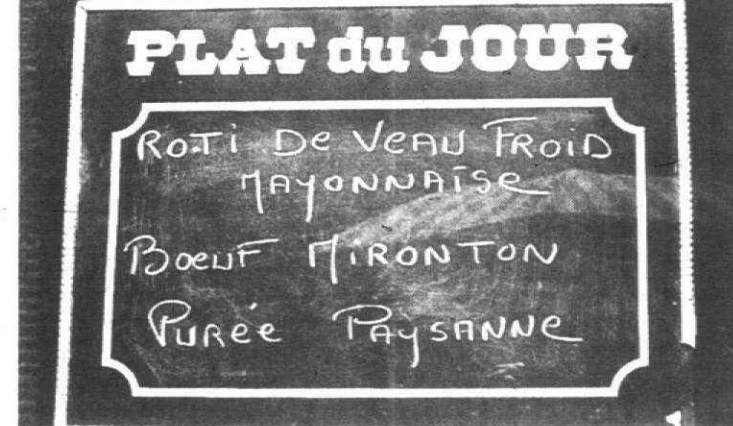 PLAT du JOUR
ROTI De VeAU FROID
MAYONNAISe
BOeUF MIRONTON
PURée PAYSANNe